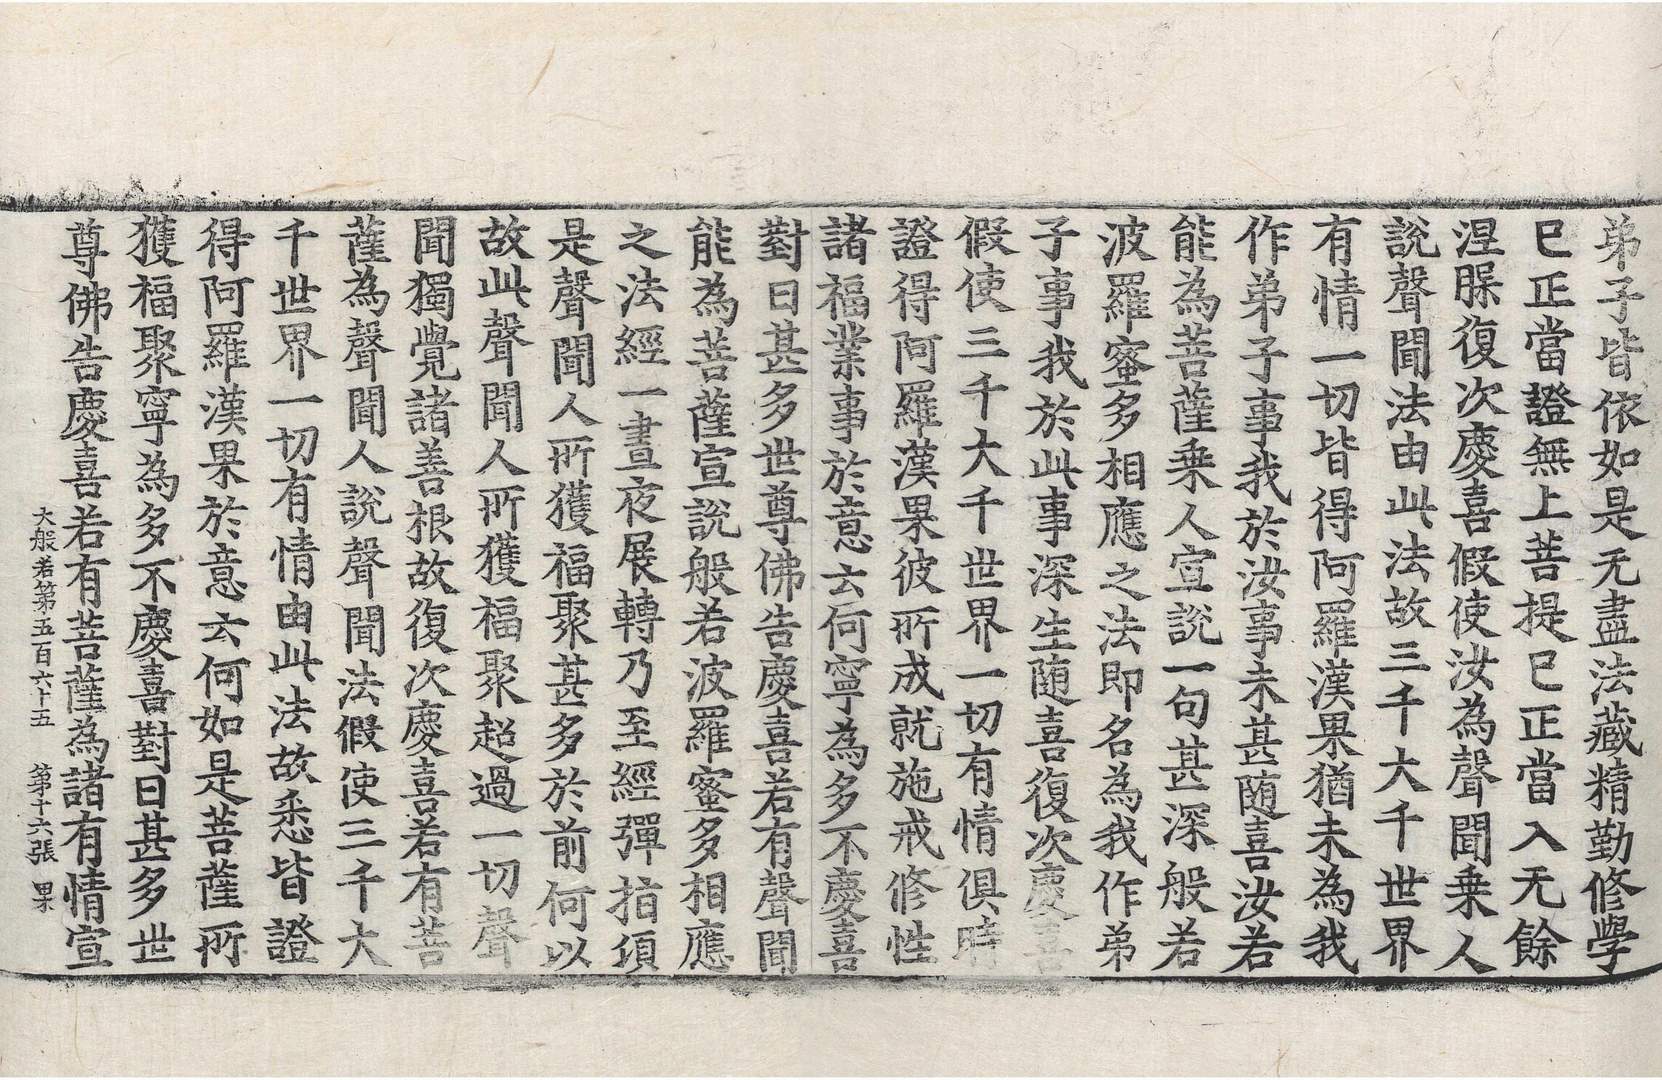 弟子皆依如是无盡法藏精勤修學
已正當證無上菩提已正當入无餘
涅槃復次慶喜假使汝為聲聞乗人
說聲聞法由此法故三千大千世界
有情一切皆得阿羅漢果猶未為我
作弟子事我於汝事未甚随喜汝若
能為菩薩乗人宣說一句甚深般若
波羅蜜多相應之法即名為我作弟
子事我於此事深生随喜復次慶喜
假使三千大千世界一切有情俱時
證得阿羅漢果彼所成就施戒修性
諸福業事於意云何寧為多不慶喜
對曰甚多世尊佛告慶喜若有聲聞
能為菩薩宣說般若波羅蜜多相應
之法經一晝夜展轉乃至經彈指須
是聲聞人所獲福聚甚多於前何以
故此聲聞人所獲福聚超過一切聲
聞獨覺諸善根故復次慶喜若有菩
薩為聲聞人說聲聞法假使三千大
千世界一切有情由此法故悉皆證
得阿羅漢果於意云何如是菩薩所
獲福聚寧為多不慶喜對曰甚多世
尊佛告慶喜若有菩薩為諸有情宣
大般若第五百六十五 第十六張 果